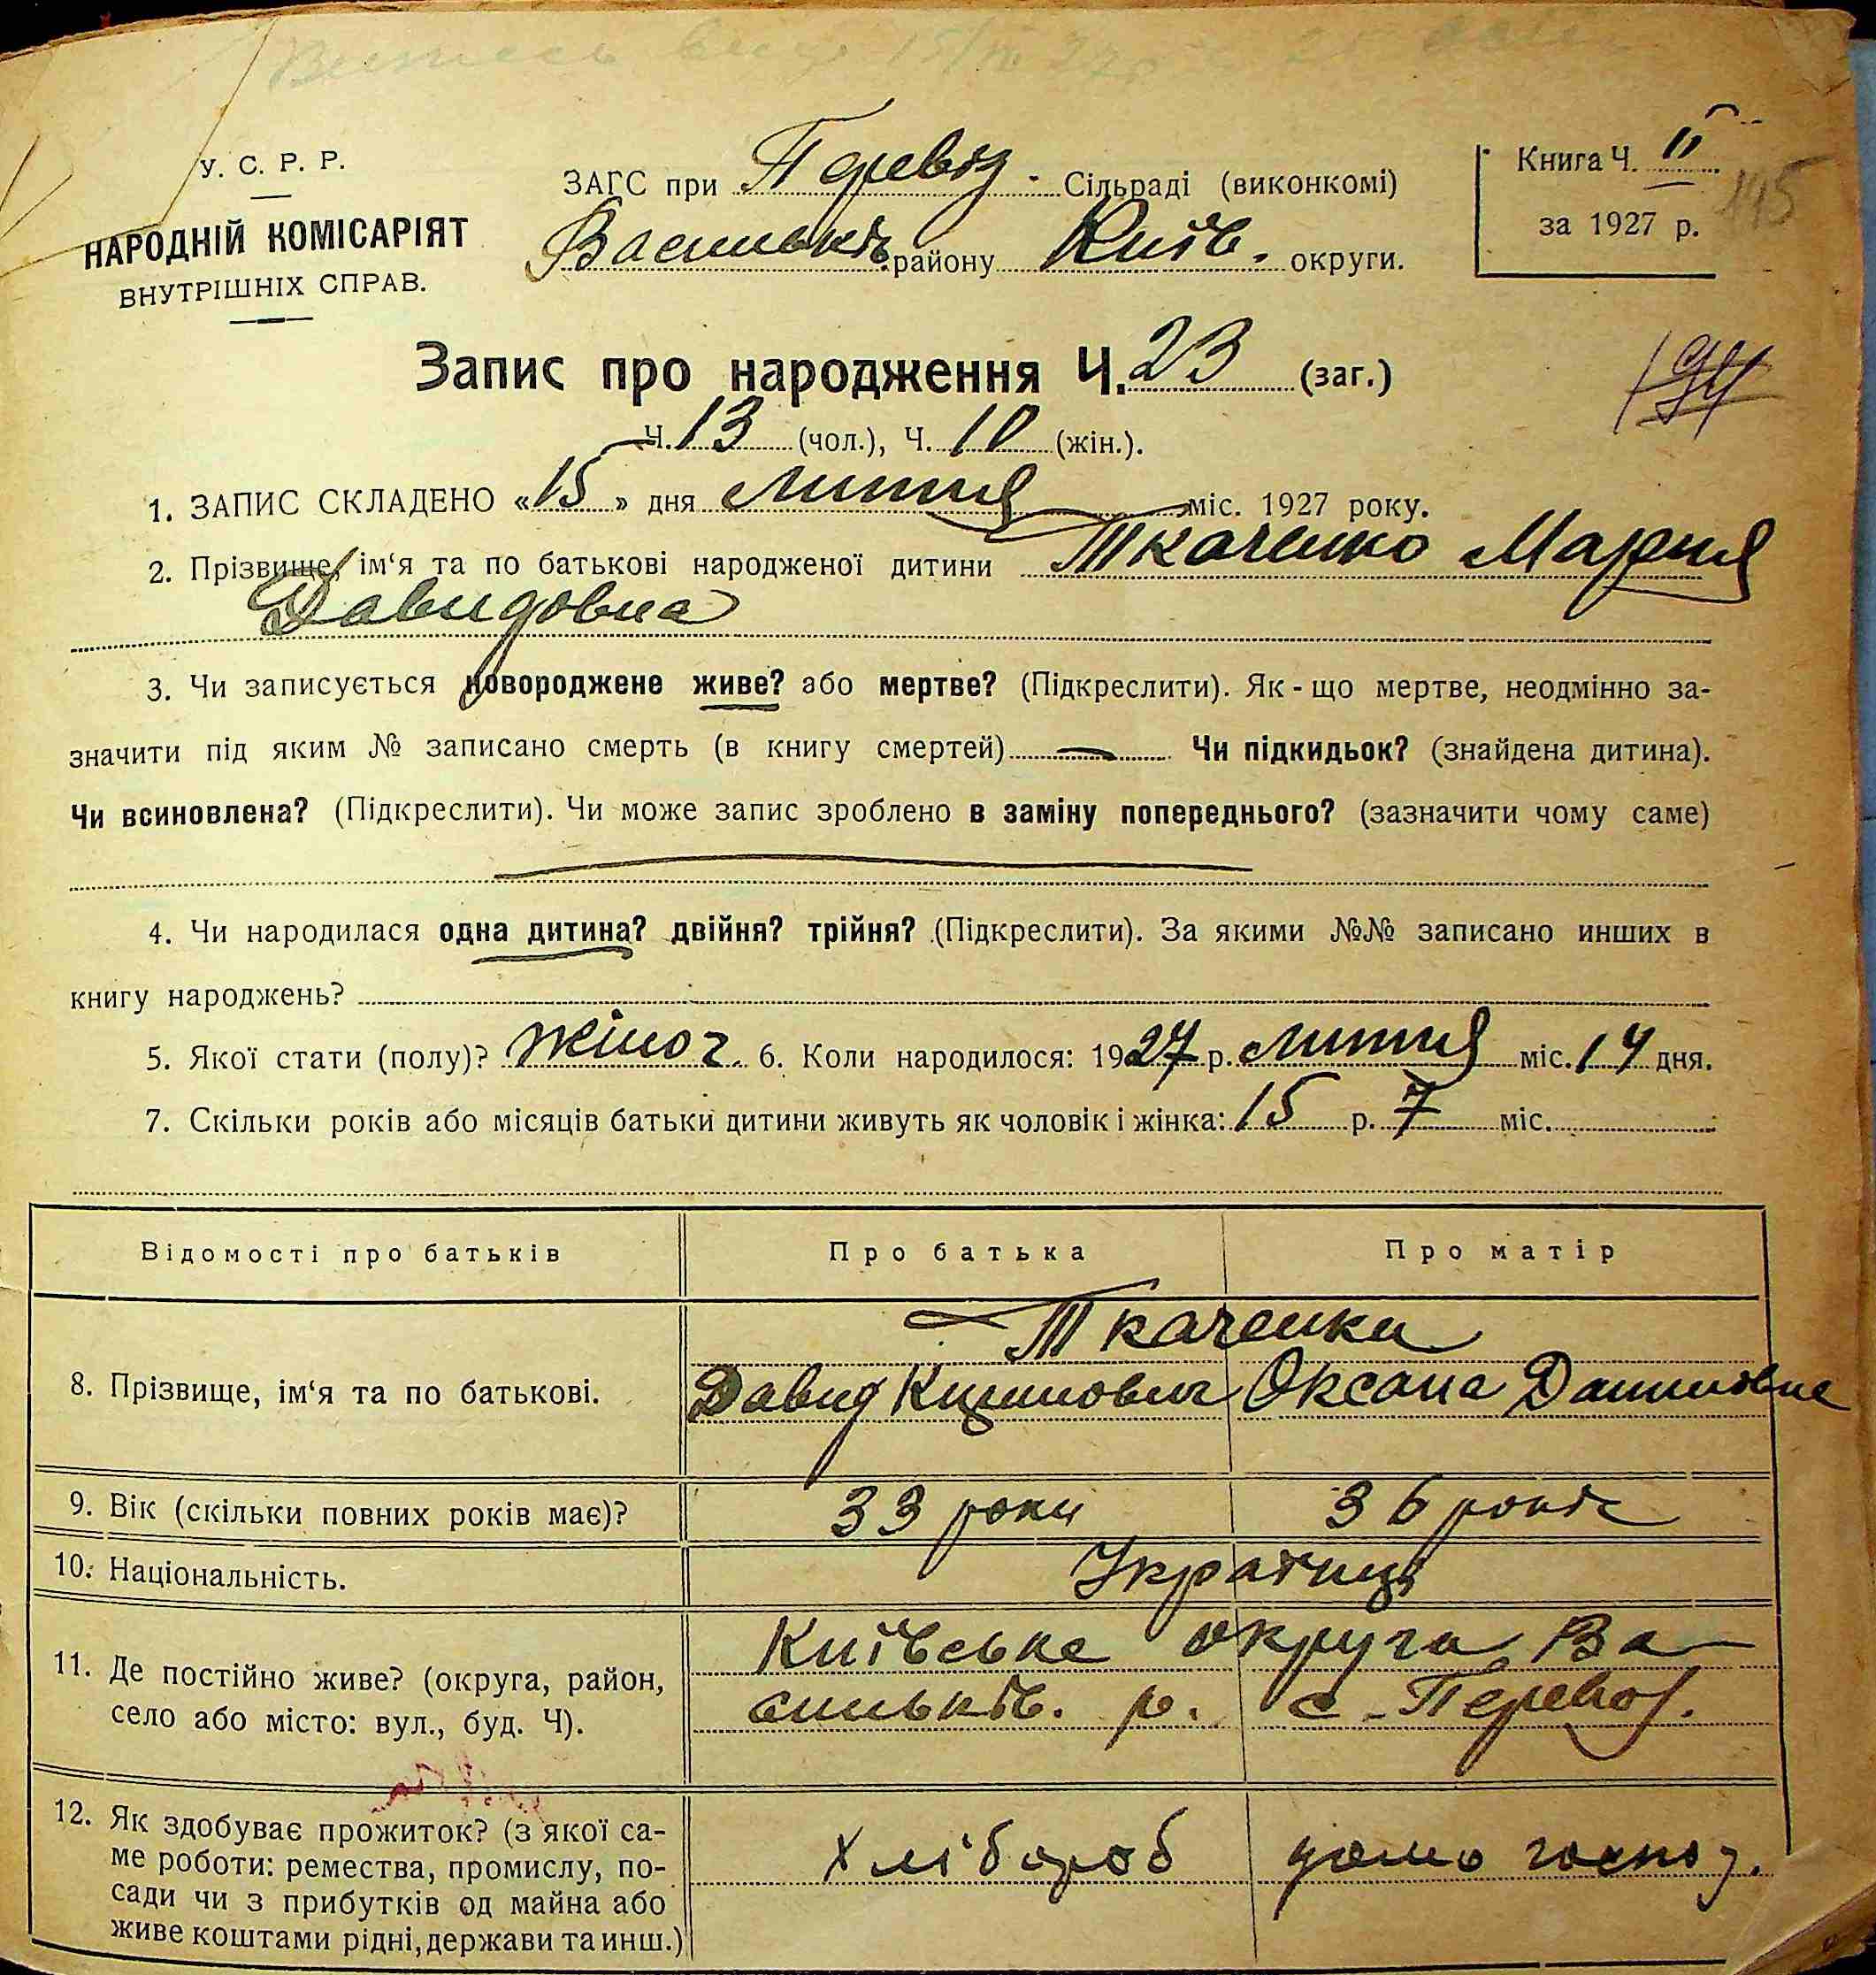 У. С. Р. Р.
НАРОДНІЙ КОМІСАРІЯТ
ВНУТРІШНІХ СПРАВ.
ЗАГС при Перевіз. Сільраді (виконкомі)
Васильків. району Київ. округи.
Книга Ч. II
за 1927 р.
145
194
Запис про народження Ч. 23 (заг.)
Ч. 13 (чол.), Ч. 10 (жін.).
1. ЗАПИС СКЛАДЕНО «15» дня лютня міс. 1927 року.
2. Прізвище, ім‘я та по батькові народженої дитини Ткаченко Мария
Давидовна
3. Чи записується новороджене живе? або мертве? (Підкреслити). Як-що мертве, неодмінно за-
значити під яким № записано смерть (в книгу смертей) — Чи підкидьок? (знайдена дитина).
Чи всиновлена? (Підкреслити). Чи може запис зроблено в заміну попереднього? (зазначити чому саме)
4. Чи народилася одна дитина? двійня? трійня? (Підкреслити). За якими №№ записано инших в
книгу народжень?
5. Якої стати (полу)? жіноч. 6. Коли народилося: 1927 р. лютня міс. 14 дня.
7. Скільки років або місяців батьки дитини живуть як чоловік і жінка: 15 р. 7 міс.
Відомості про батьків Про батька Про матір
Ткаченки
8. Прізвище, ім‘я та по батькові. Давид Оксана Даниловна
9. Вік (скільки повних років має)? 33 роки 36 років
10. Національність. Українці
11. Де постійно живе? (округа, район,
село або місто: вул., буд. Ч).
Київська округа Ва-
сильків. р. с. Перевоз.
12. Як здобуває прожиток? (з якої са-
ме роботи: ремества, промислу, по-
сади чи з прибутків од майна або
живе коштами рідні, держави та инш.)
хлібороб домо господ.